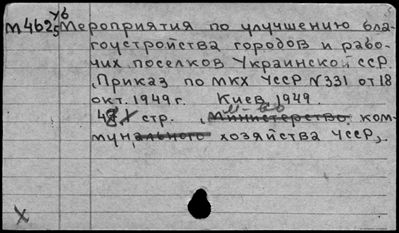 М462 уб
5
Мероприятия по улучшению бла-
гоустройства городов и рабо-
чих поселков Украинской ССР.
,Приказ по МКХ УССР N331 от 18
окт. 1949 г. Киев, 1949.
стр. , Министерство ком-
м-во
мун,ального хозяйства УССР,.
X